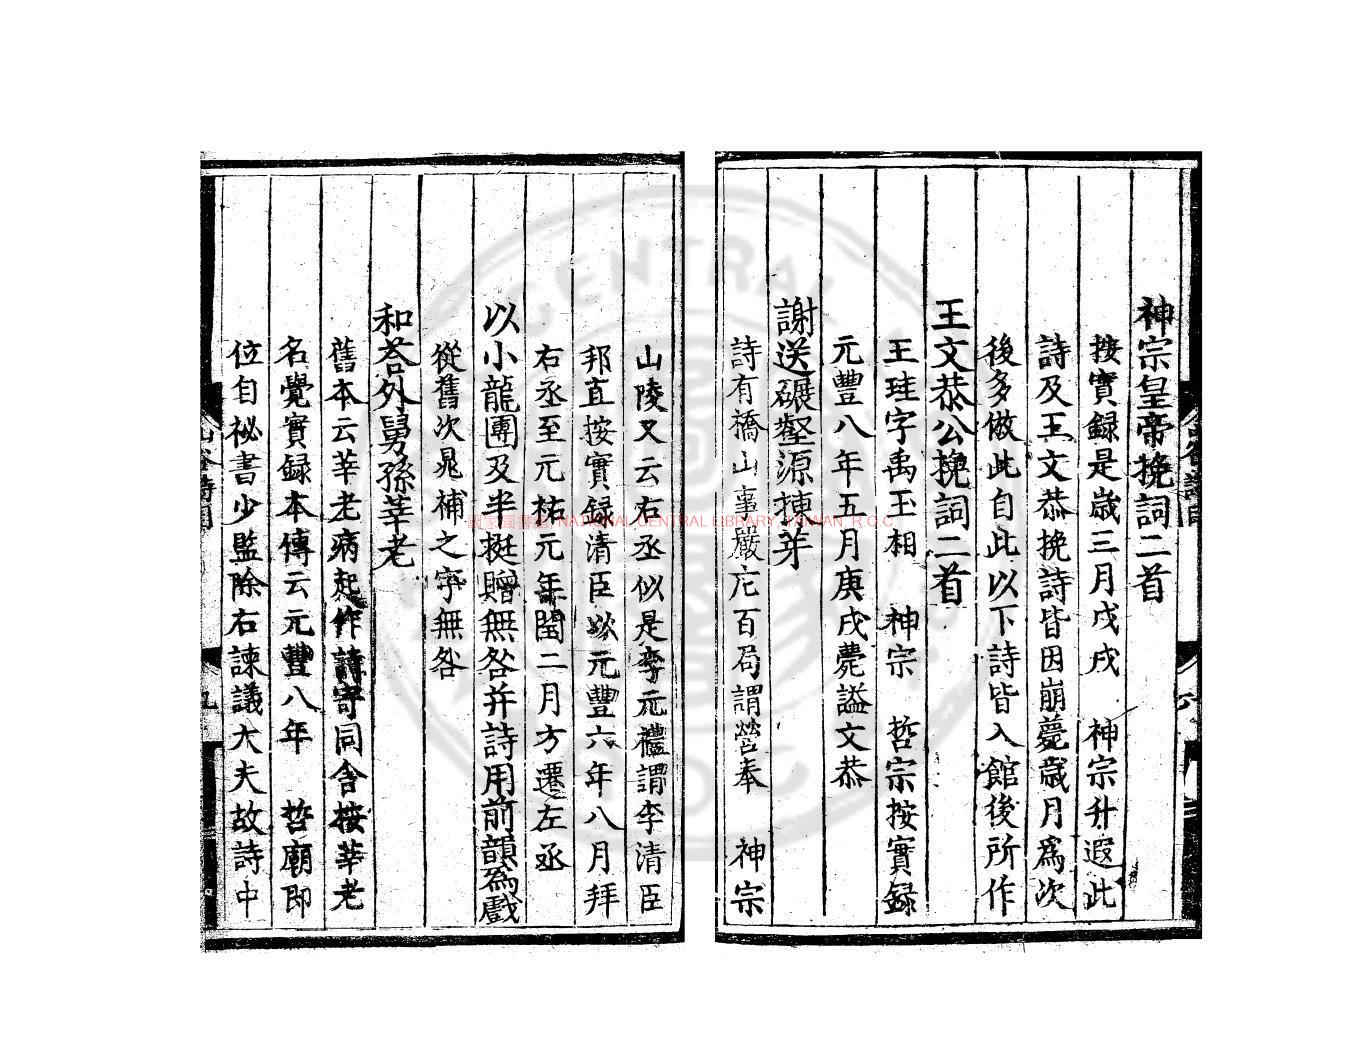 神宗皇帝挽詞二首
按實録是歲三月戊戌 神宗升遐此
詩及王文恭挽詩皆因崩薨歲月爲次
後多倣此自此以下詩皆入館後所作
王文恭公挽詞二首
王珪字禹玉相 神宗 哲宗按實録
元豐八年五月庚戌薨謚文恭
謝送碾壑源揀芽
詩有橋山事嚴庀百局謂營奉 神宗
山陵又云右丞似是李元禮謂李清臣
邦直按實録清臣以元豐六年八月拜
右丞至元祐元年閏二月方遷左丞
以小龍團及半挺贈無咎并詩用前韻爲戲
從舊次晁補之字無咎
和荅外舅孫莘老
舊本云莘老病起作詩寄同舍按莘老
名覺實録本傳云元豐八年 哲廟即
位自祕書少監除右諫議大夫故詩中
國家圖書館 NATIONAL CENTRAL LIBRARY, TAIWAN, R.O.C
CENTRAL